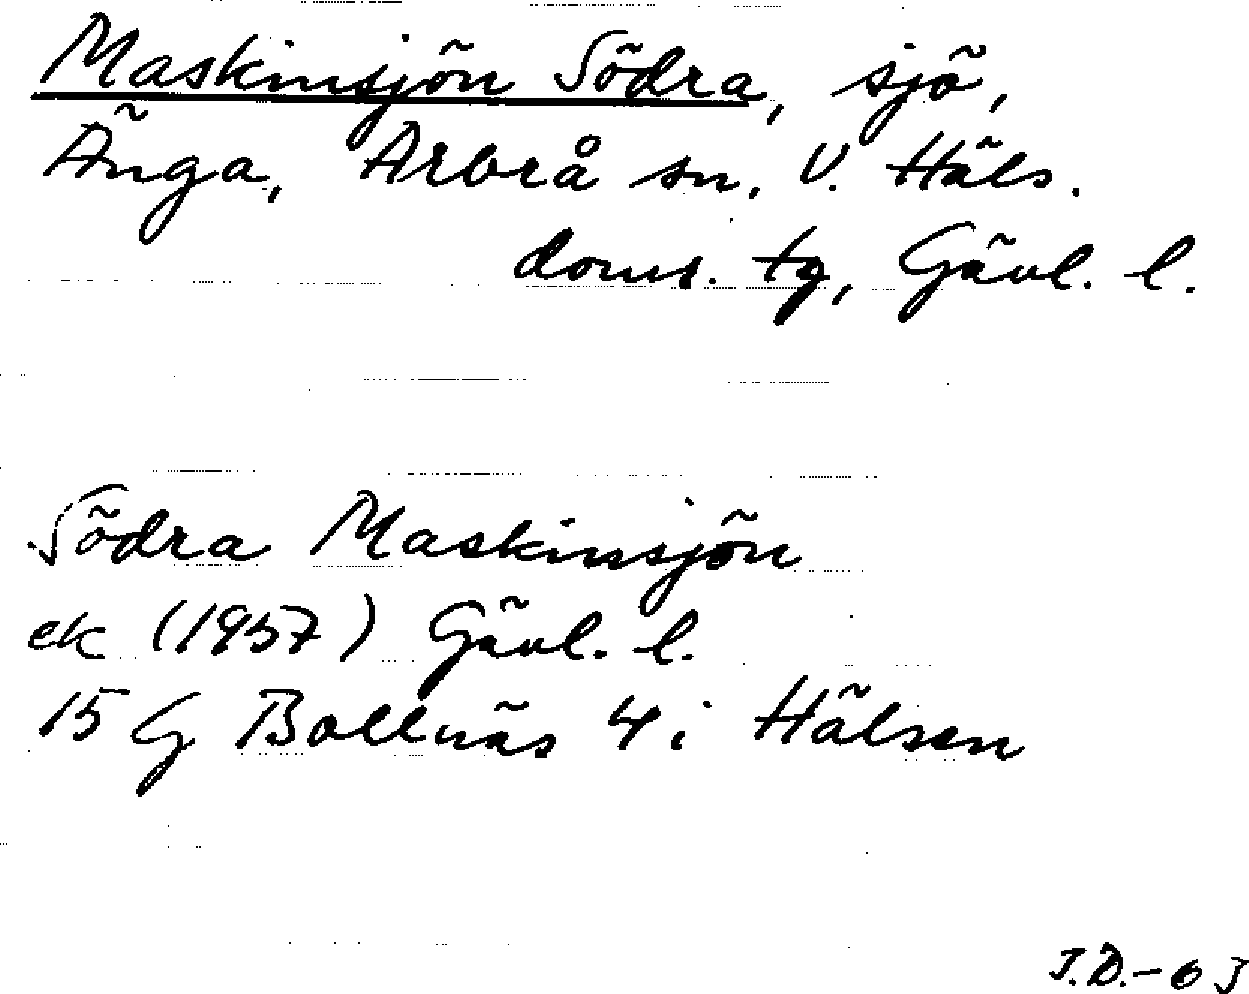 Maskinsjön Södra, sjö,
Änga, Arbrå sn. V. Häls.
doms. tg, Gävl. l.
Södra Maskinsjön
ek (1957) Gävl. l.
15 G Bollnäs 4 i Hälsen
J.D.-63